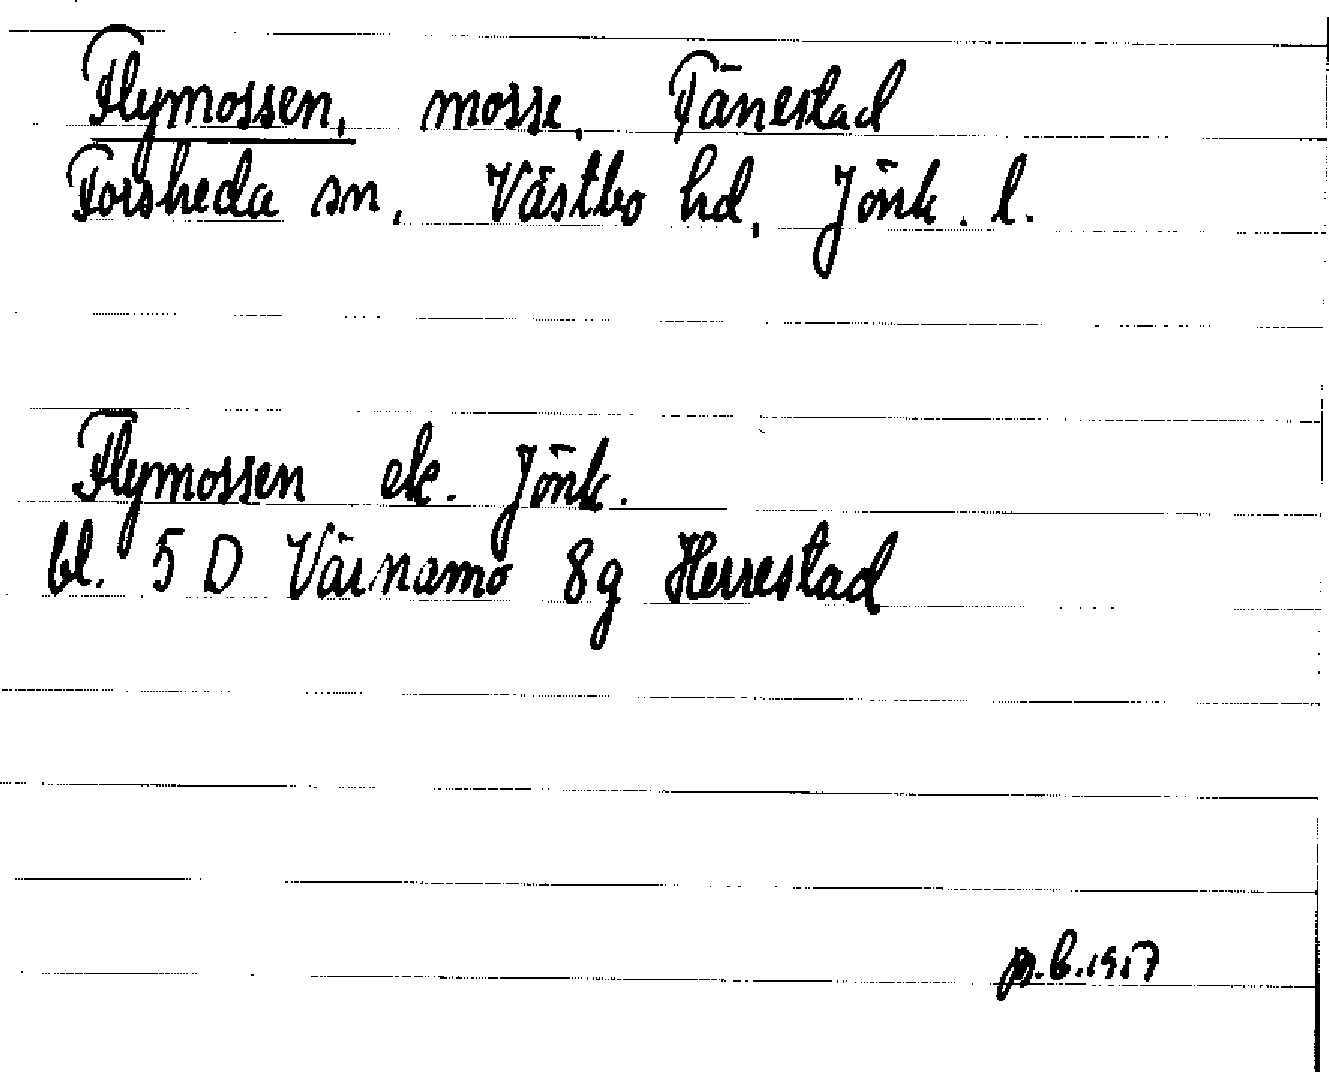 Flymossen, mosse, Tånestad
Forsheda sn, Västbo hd, Jönk. l.
Flymossen ek. Jönk.
bl. 5 D Värnamo 8g Herrestad
p.b.1917